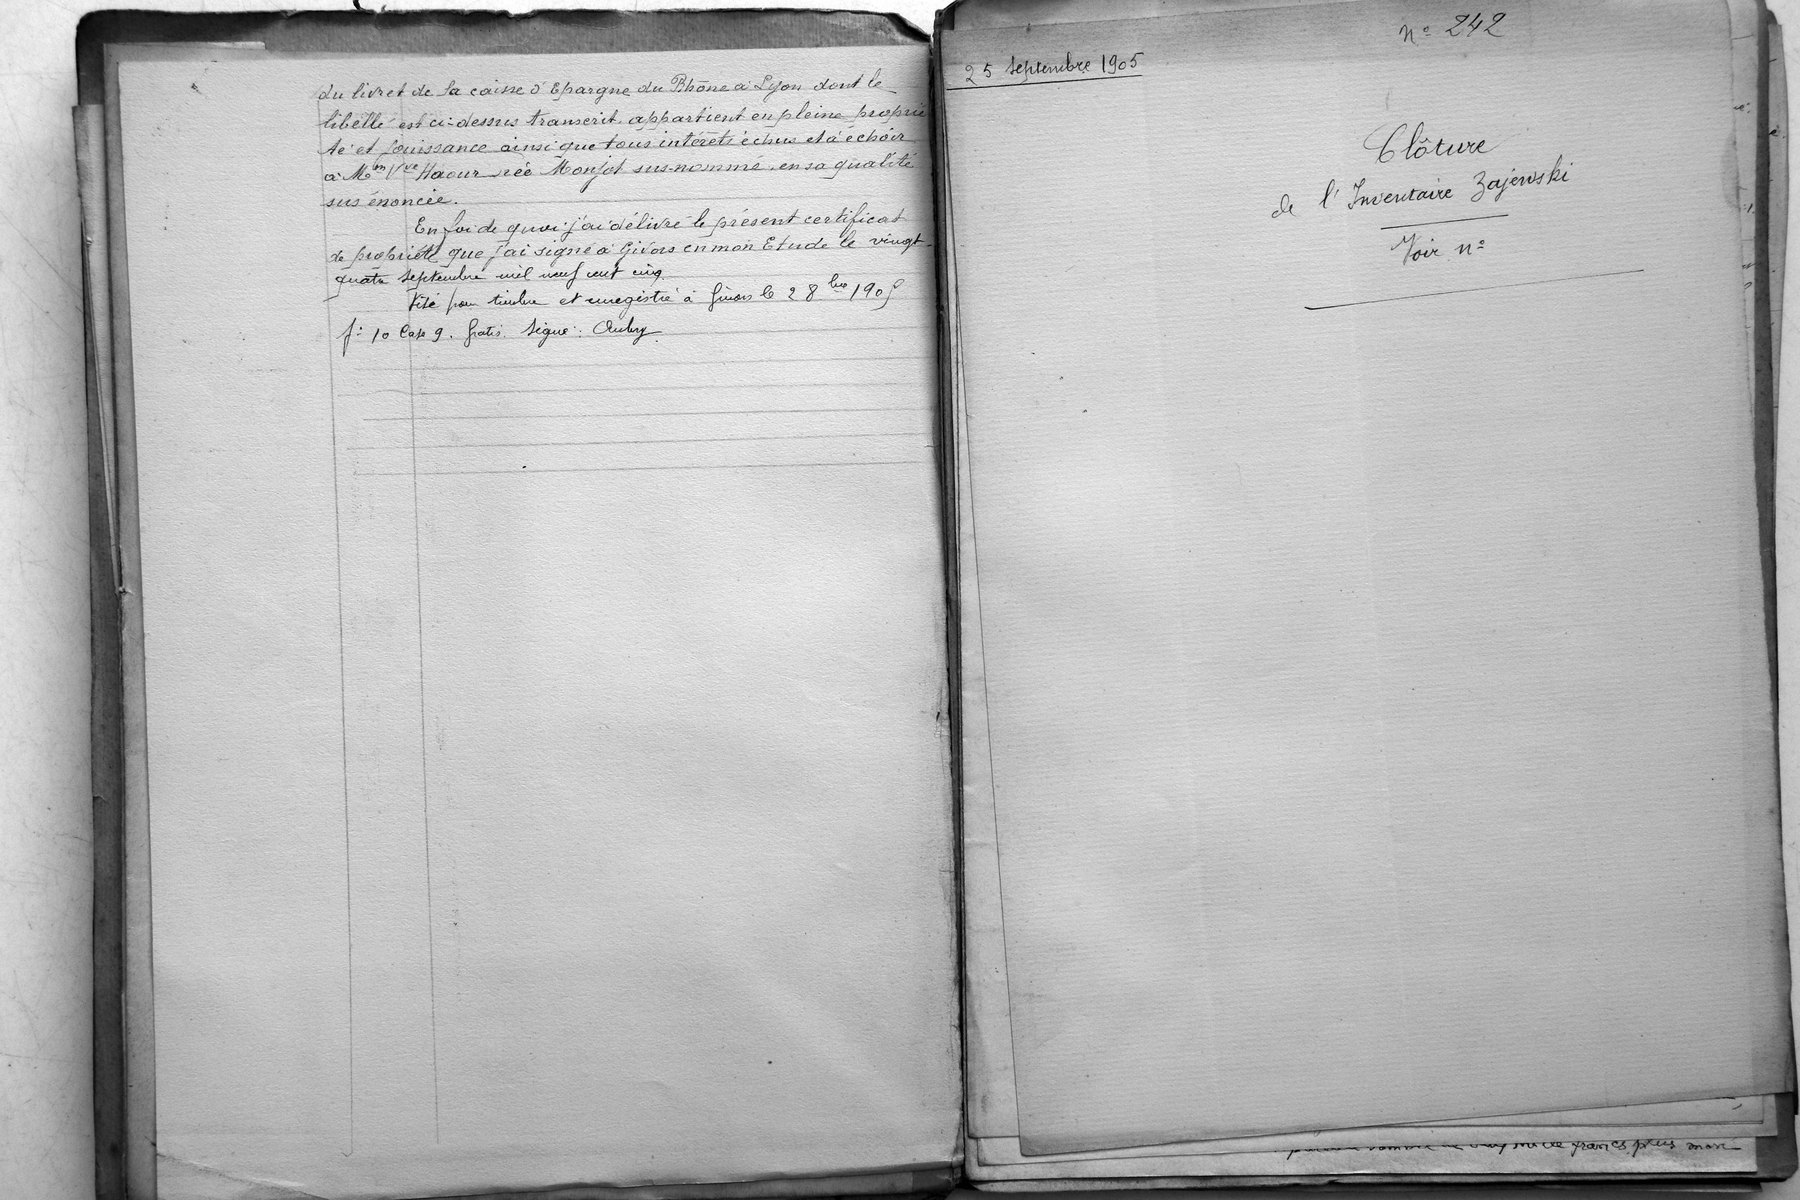 du livret de la caisse d'Epargne du Rhône à Lyon dont le
libellé est ci-dessus transcrit appartient en pleine proprié
té et jouissance ainsi que tous intérêts échus et à échoir
à Mme Vve Haour née Monjot sus-nommé, en sa qualité
sus énoncée.
En foi de quoi j'ai délivré le présent certificat
de propriété que j'ai signé à Givors en mon Etude le vingt-
quatre septembre mil neuf cent cinq.
Visé pour timbre et enregistré à Givors le 2 8bre 1905
f: 10 Case 9. Gratis. Signé: Aubry
N° 242
25 septembre 1905
Clôture
de l'Inventaire Zajewski
Voir n°
mille francs plus